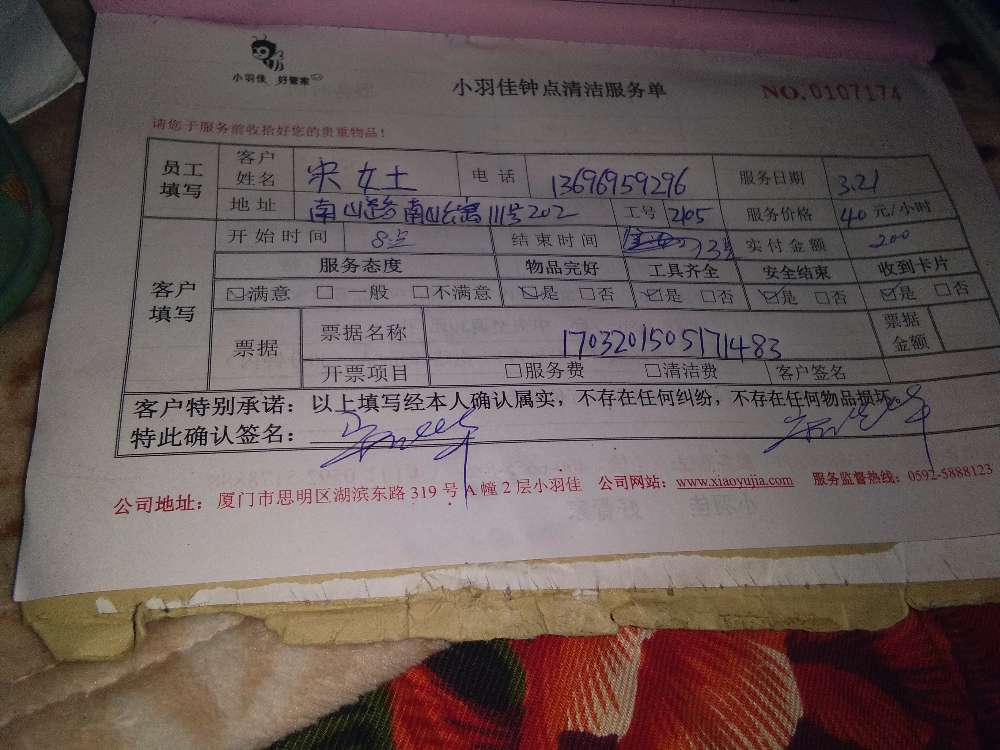 小羽佳 好管家
小羽佳钟点清洁服务单
NO.0107174
请您于服务前收拾好您的贵重物品！
员工填写 客户姓名 宋女士 电话 13696959296 服务日期 3.21
地址 南山路南山 111号202 工号 2105 服务价格 40元/小时
客户填写 开始时间 8点 结束时间 实付金额 200
服务态度 物品完好 工具齐全 安全结束 收到卡片
☑满意 □一般 □不满意 ☑是 □否 ☑是 □否 ☑是 □否 ☑是 □否
票据 票据名称 1703201505171483 票据金额
开票项目 □服务费 □清洁费 客户签名
客户特别承诺：以上填写经本人确认属实，不存在任何纠纷，不存在任何物品损坏。
特此确认签名：
公司地址：厦门市思明区湖滨东路 319 号 A 幢 2 层小羽佳 公司网站：www.xiaoyujia.com 服务监督热线：0592-5888123